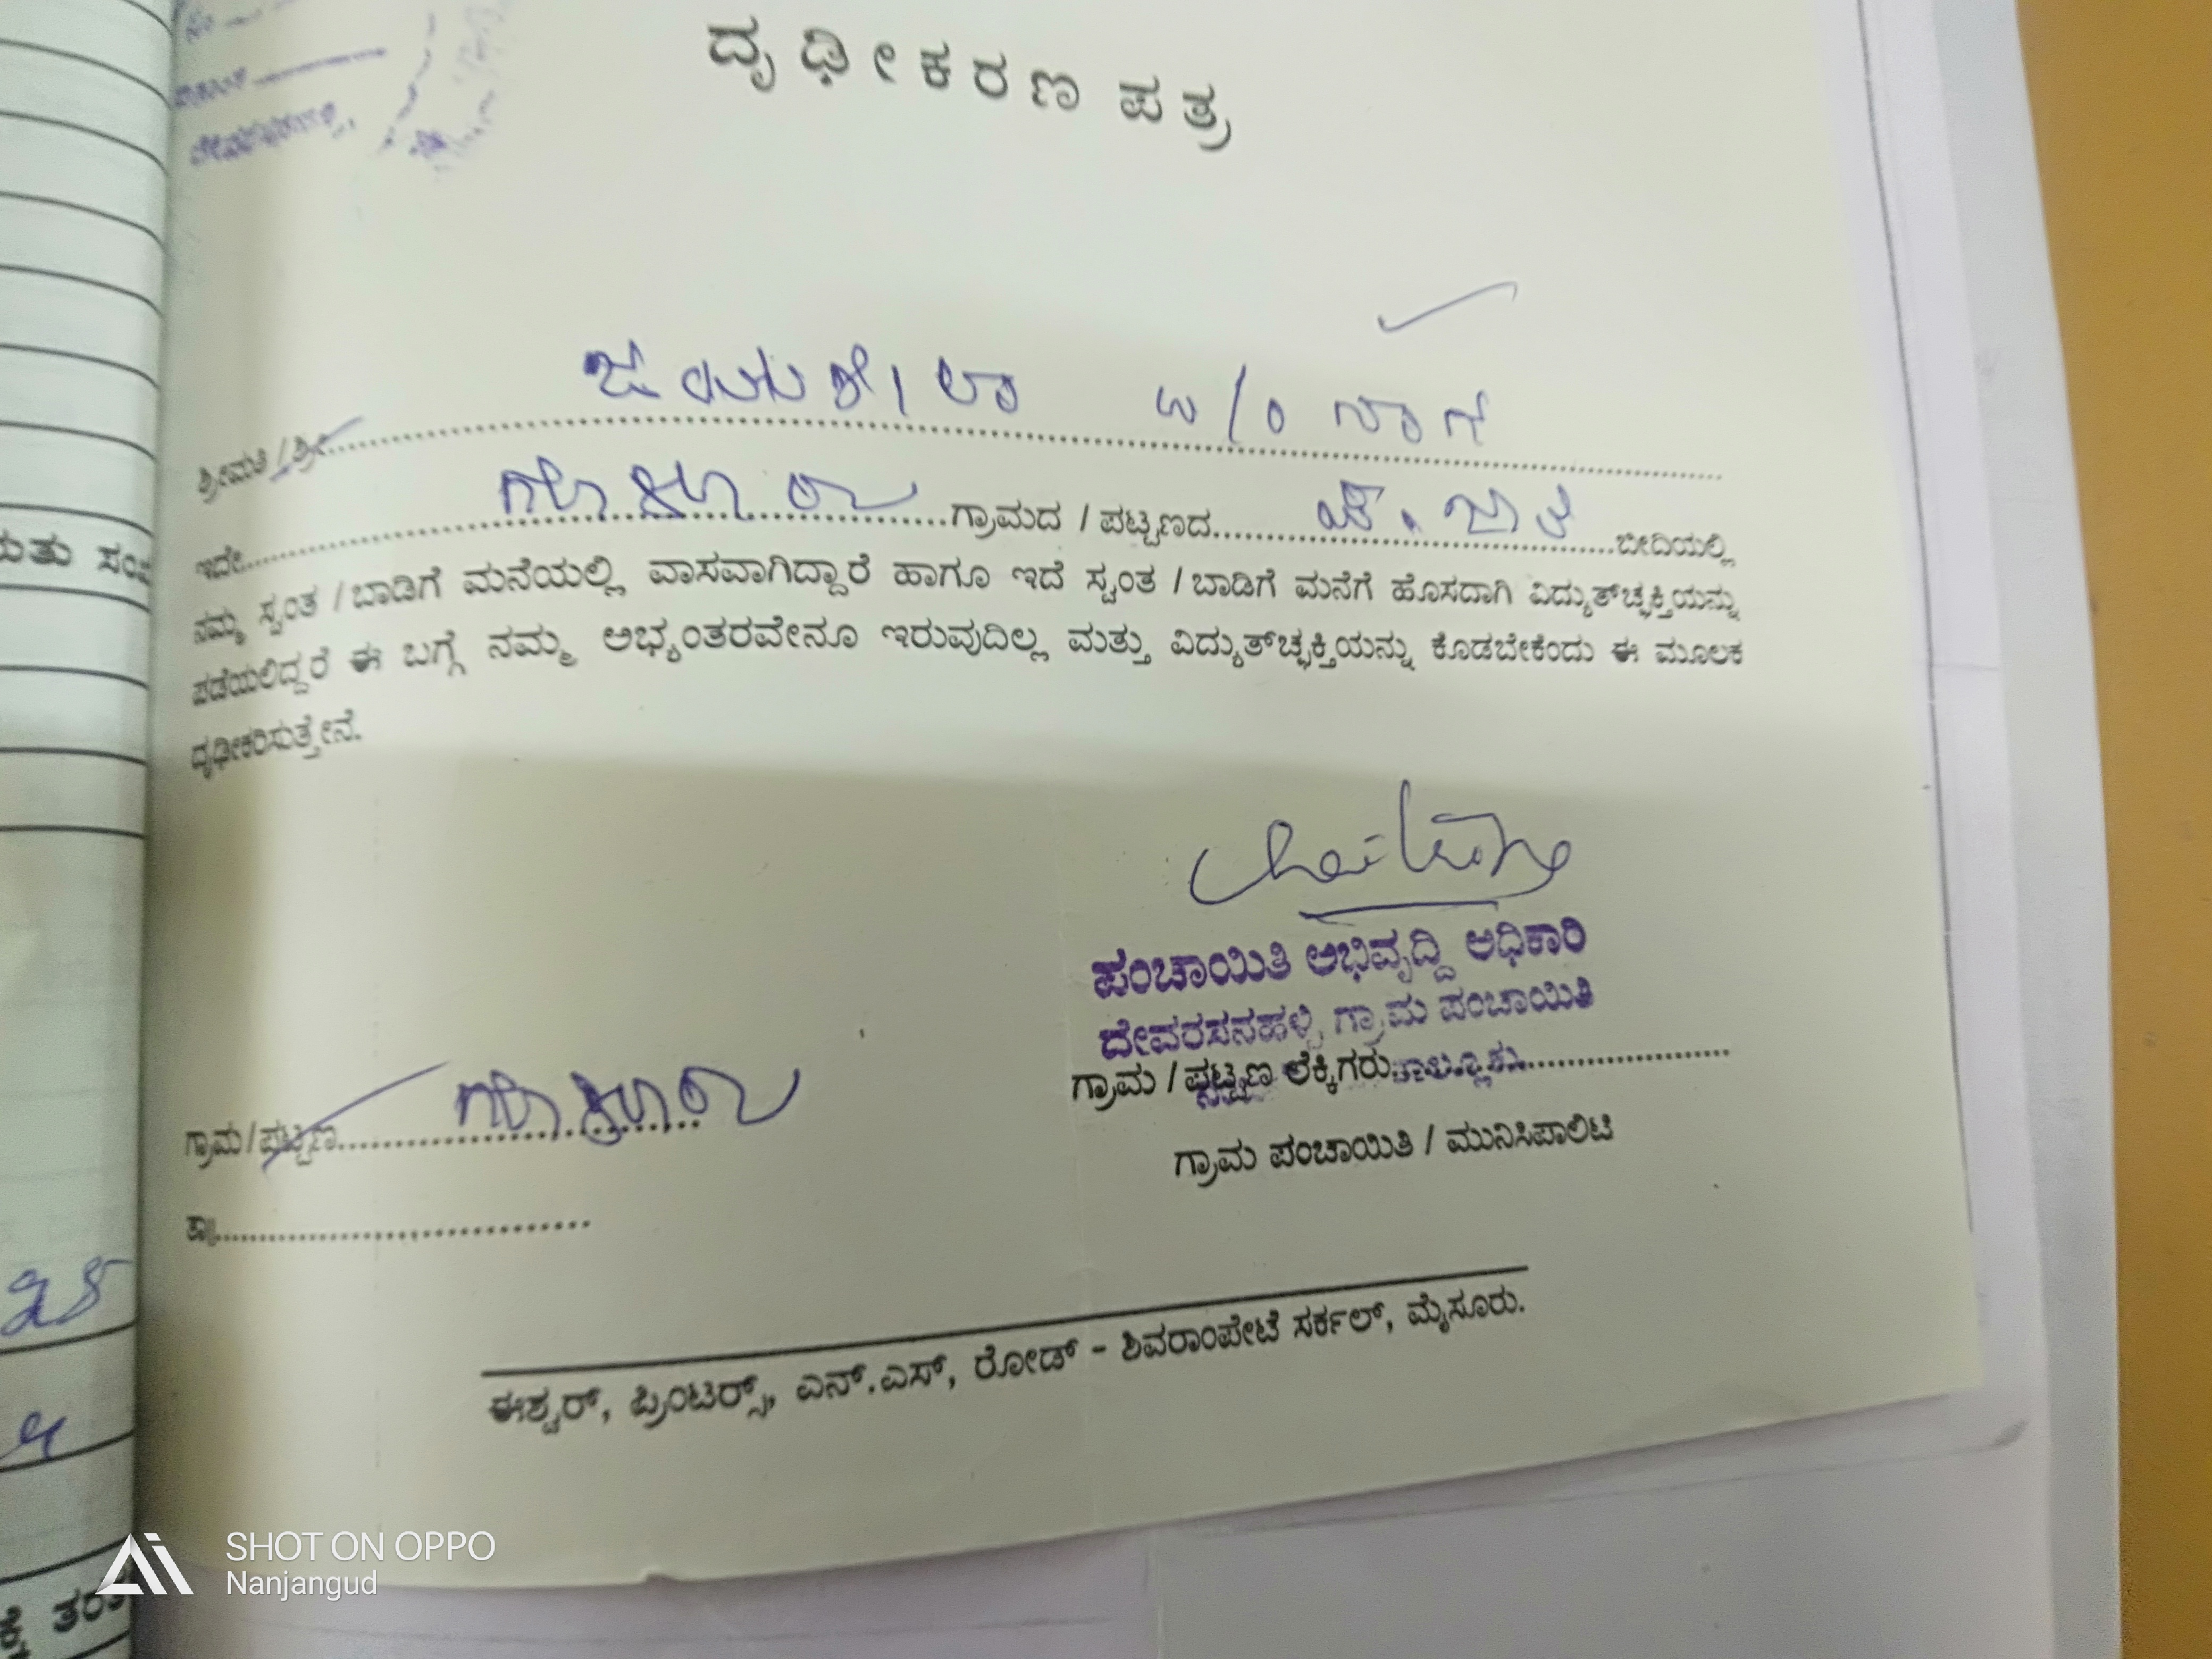 ದೃಢೀಕರಣ ಪತ್ರ
ಶ್ರೀಮತಿ / ಶ್ರೀ ಜಯಶೀಲಾ w/o ನಾಗ
ಇದೇ ಗ್ರಾಮದ / ಪಟ್ಟಣದ ಬೀದಿಯಲ್ಲಿ
ನಮ್ಮ ಸ್ವಂತ / ಬಾಡಿಗೆ ಮನೆಯಲ್ಲಿ ವಾಸವಾಗಿದ್ದಾರೆ ಹಾಗೂ ಇದೆ ಸ್ವಂತ / ಬಾಡಿಗೆ ಮನೆಗೆ ಹೊಸದಾಗಿ ವಿದ್ಯುತ್‌ಚ್ಛಕ್ತಿಯನ್ನು
ಪಡೆಯಲಿದ್ದರೆ ಈ ಬಗ್ಗೆ ನಮ್ಮ ಅಭ್ಯಂತರವೇನೂ ಇರುವುದಿಲ್ಲ ಮತ್ತು ವಿದ್ಯುತ್‌ಚ್ಛಕ್ತಿಯನ್ನು ಕೊಡಬೇಕೆಂದು ಈ ಮೂಲಕ
ದೃಢೀಕರಿಸುತ್ತೇನೆ.
ಪಂಚಾಯಿತಿ ಅಭಿವೃದ್ಧಿ ಅಧಿಕಾರಿ
ದೇವರಸನಹಳ್ಳಿ ಗ್ರಾಮ ಪಂಚಾಯಿತಿ
ಗ್ರಾಮ / ಪಟ್ಟಣ ಲೆಕ್ಕಿಗರು ತಾಲ್ಲೂಕು
ಗ್ರಾಮ / ಪಟ್ಟಣ
ಗ್ರಾಮ ಪಂಚಾಯಿತಿ / ಮುನಿಸಿಪಾಲಿಟಿ
ತಾ||
ಈಶ್ವರ್, ಪ್ರಿಂಟರ್ಸ್, ಎನ್.ಎಸ್, ರೋಡ್ - ಶಿವರಾಂಪೇಟೆ ಸರ್ಕಲ್, ಮೈಸೂರು.
SHOT ON OPPO
Nanjangud